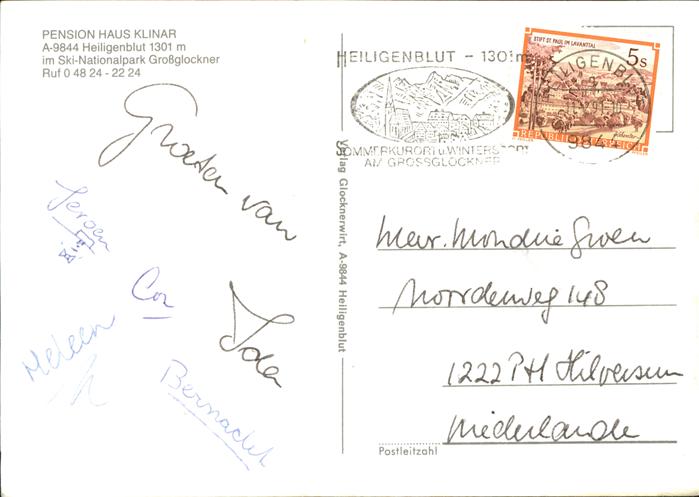 PENSION HAUS KLINAR
A-9844 Heiligenblut 1301 m
im Ski-Nationalpark Großglockner
Ruf 0 48 24 - 22 24
Groeten van
Jeroen
Cor
Ida
Heleen
Bernadet
Verlag Glocknerwirt, A-9844 Heiligenblut
HEILIGENBLUT - 1301m
SOMMERKURORT u. WINTERSPORT
AM GROSSGLOCKNER
STIFT ST. PAUL IM LAVANTTAL
5S
REPUBLIK ÖSTERREICH
HEILIGENB
984
Mevr. Mondrie Groen
Noorderweg 148
1222 PH Hilversum
Niederlande
Postleitzahl